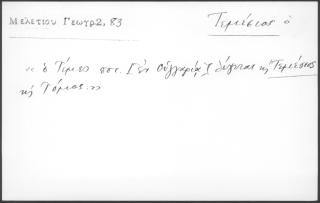 Μελετίου Γεωγρ2, 83
Τεμέσιος ὁ
« ὁ Τίμες ποτ. [ἐν Οὑγγαρίᾳ] λέγεται κ̀ Τεμέσιος
κ̀ Τόμιος »